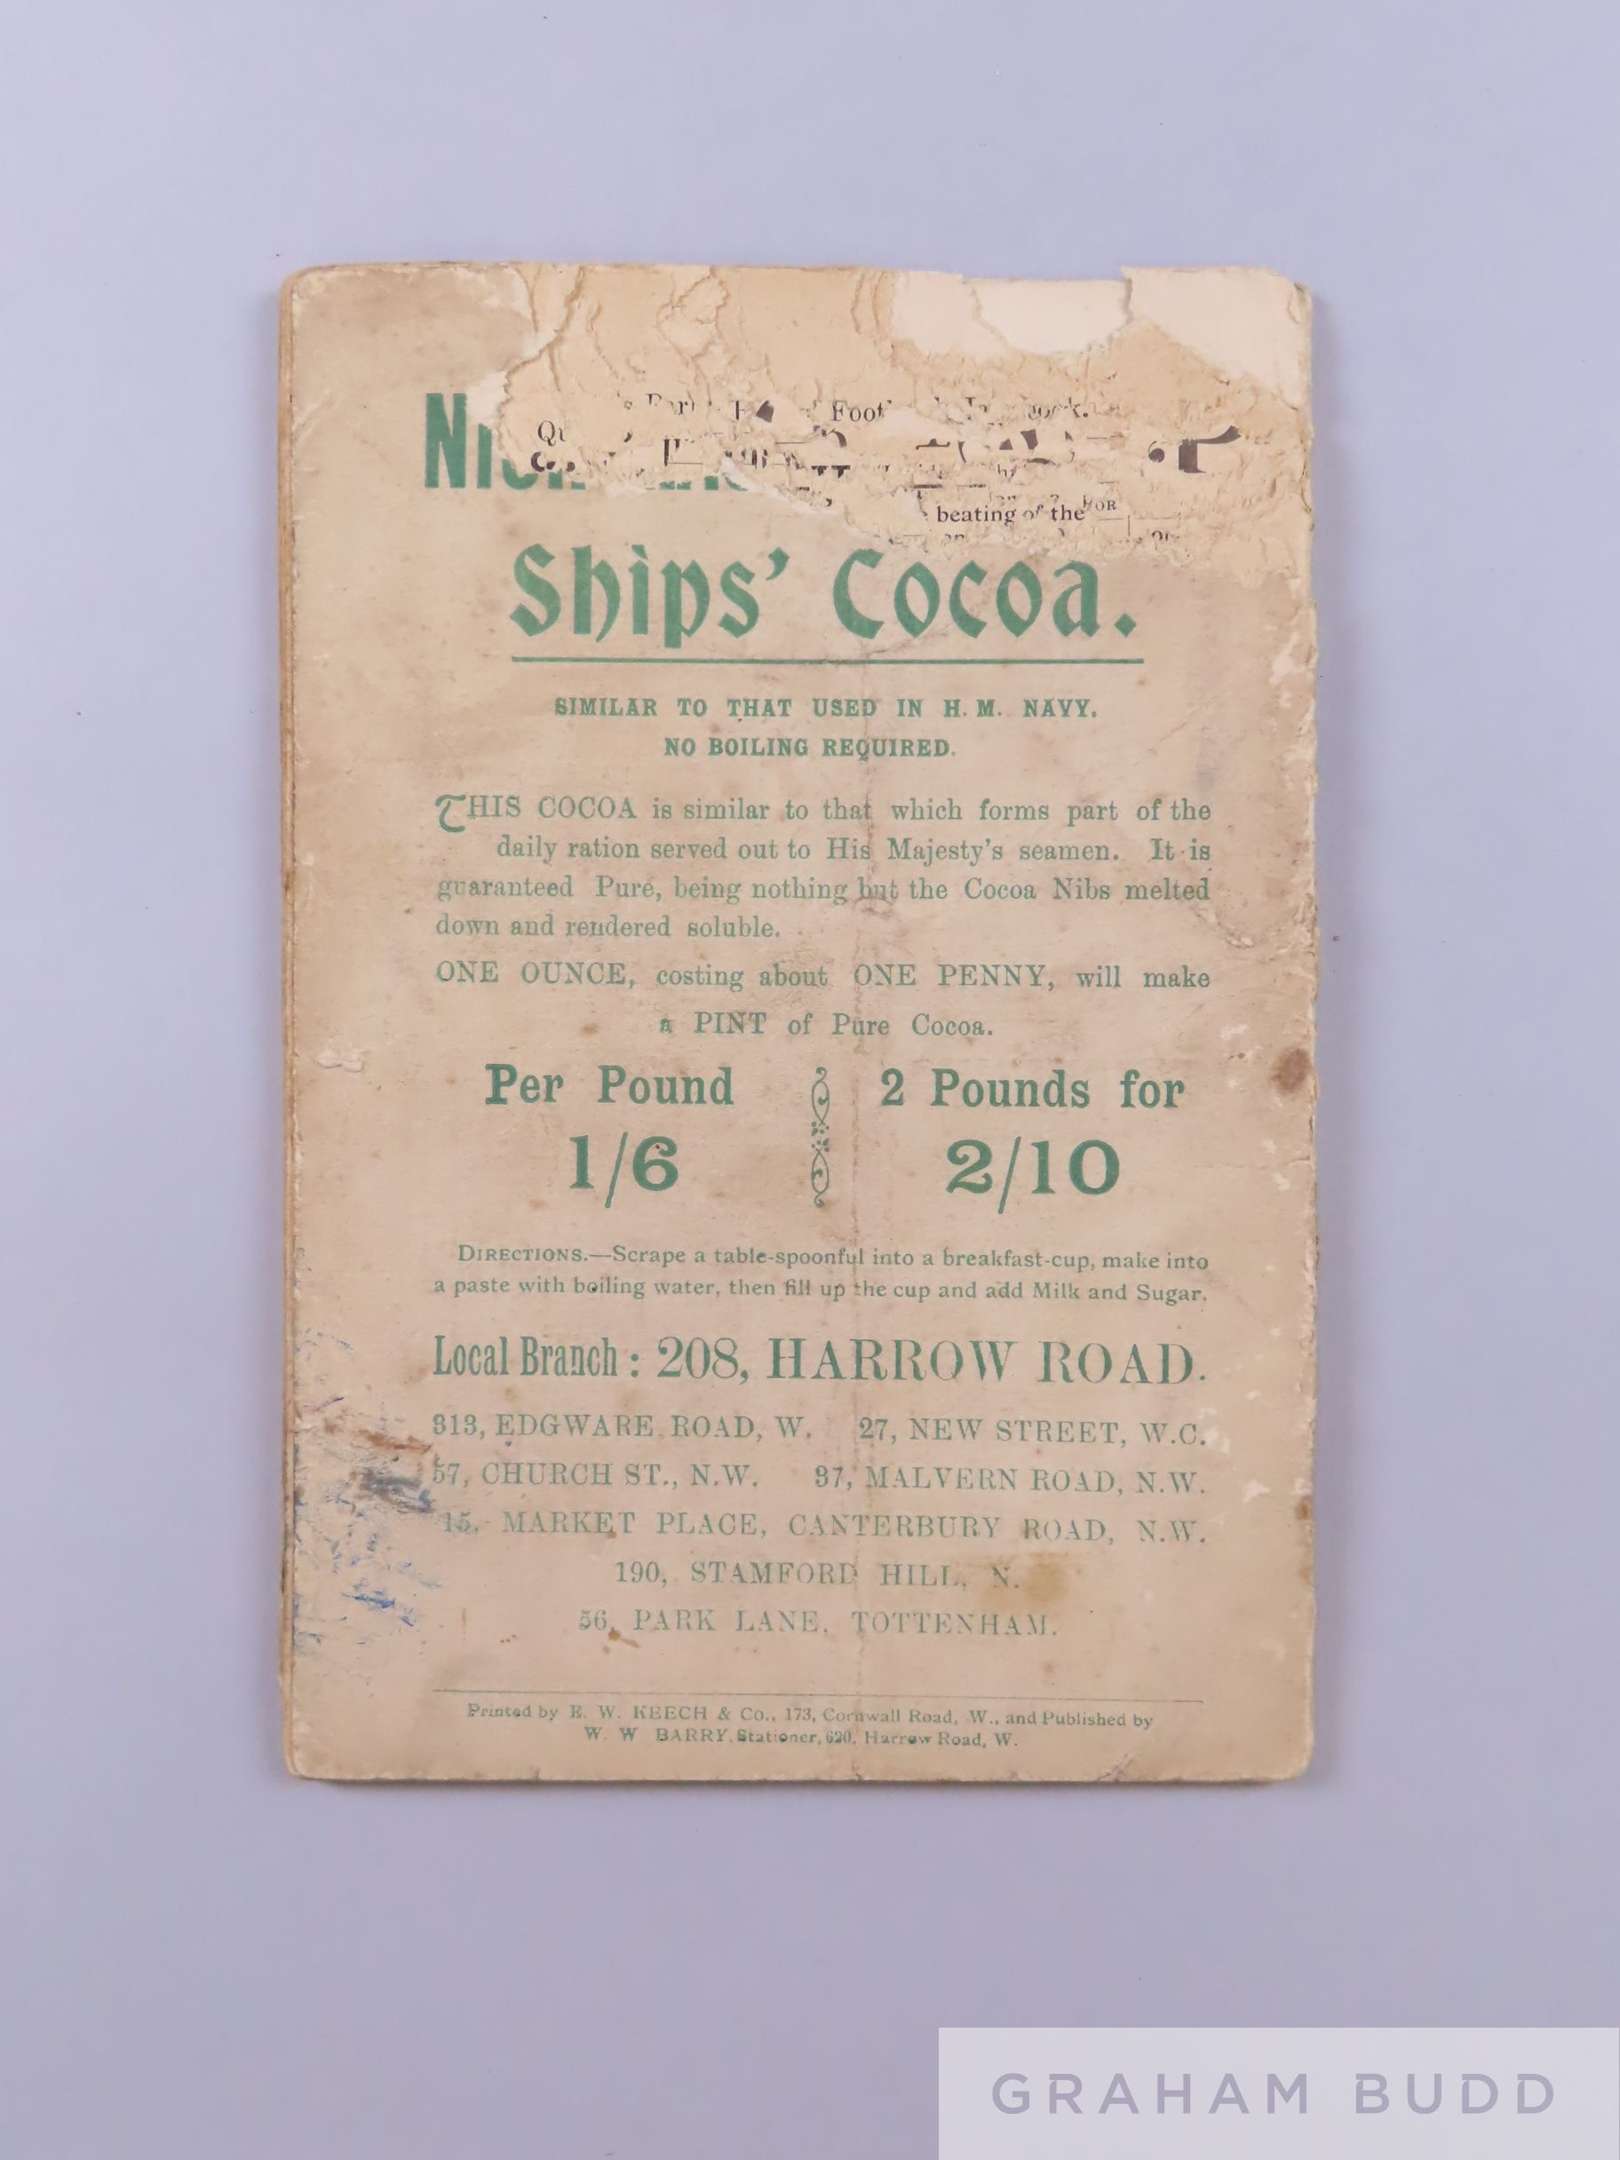 Foot
beating of the
Ships' Cocoa.
SIMILAR TO THAT USED IN H. M. NAVY.
NO BOILING REQUIRED.
THIS COCOA is similar to that which forms part of the
daily ration served out to His Majesty's seamen. It is
guaranteed Pure, being nothing but the Cocoa Nibs melted
down and rendered soluble.
ONE OUNCE, costing about ONE PENNY, will make
a PINT of Pure Cocoa.
Per Pound
1/6
2 Pounds for
2/10
DIRECTIONS.—Scrape a table-spoonful into a breakfast-cup, make into
a paste with boiling water, then fill up the cup and add Milk and Sugar.
Local Branch : 208, HARROW ROAD.
313, EDGWARE ROAD, W. 27, NEW STREET, W.C.
57, CHURCH ST., N.W. 37, MALVERN ROAD, N.W.
15, MARKET PLACE, CANTERBURY ROAD, N.W.
190, STAMFORD HILL, N.
56, PARK LANE, TOTTENHAM.
Printed by E. W. KEECH & Co., 173, Cornwall Road, W., and Published by
W. W BARRY, Stationer, 620, Harrow Road, W.
GRAHAM BUDD